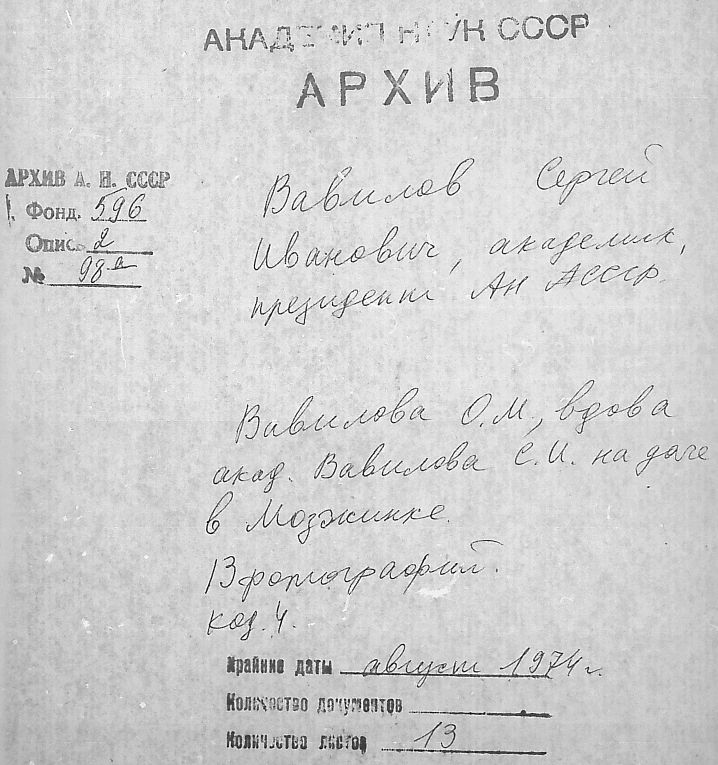 АКАДЕМИЯ НАУК СССР
АРХИВ
АРХИВ А. Н. СССР
Фонд. 596
Опись 2
№ 98а
Вавилов Сергей
Иванович, академик,
президент АН СССР.
Вавилова О.М., вдова
акад. Вавилова С.И. на даче
в Мозжинке.
13 фотографий.
кад. 4.
Крайние даты август 1974 г.
Количество документов
Количество листов 13